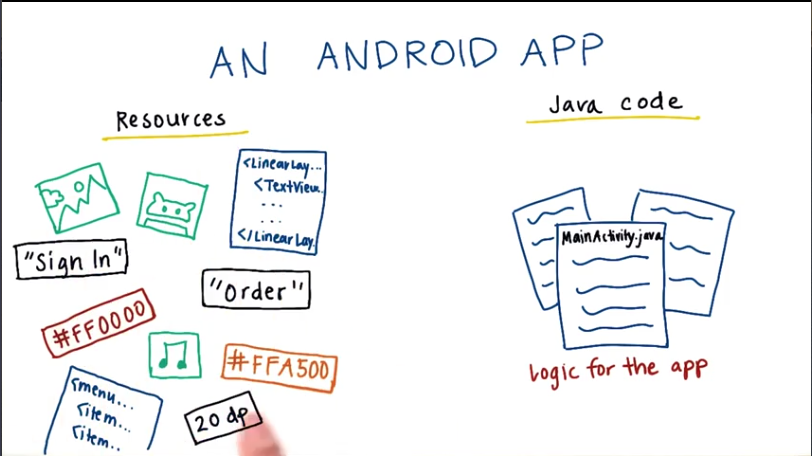 AN ANDROID APP
Resources
<LinearLay...
<TextView..
...
...
</LinearLay.
"Sign In"
"Order"
#FF0000
#FFA500
<menu...
<item...
<item..
20 dp
Java code
MainActivity.java
Logic for the app